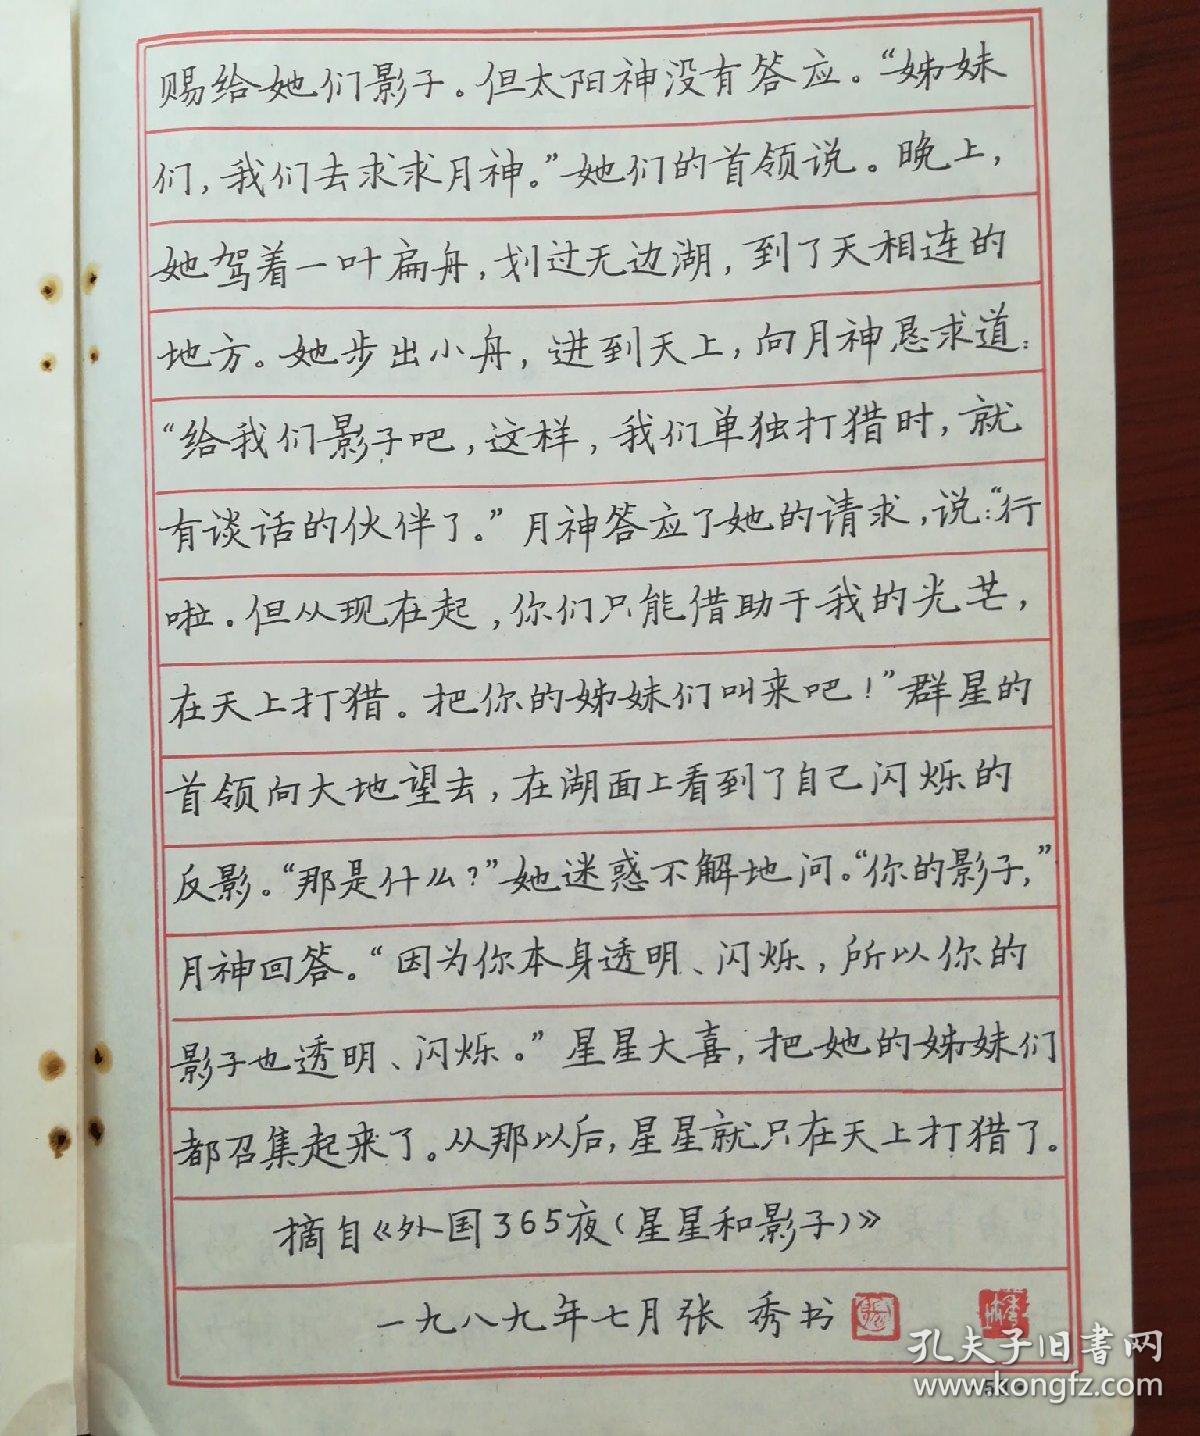 赐给她们影子。但太阳神没有答应。“姊妹
们，我们去求求月神。”她们的首领说。晚上，
她驾着一叶扁舟，划过无边湖，到了天相连的
地方。她步出小舟，进到天上，向月神恳求道：
“给我们影子吧，这样，我们单独打猎时，就
有谈话的伙伴了。”月神答应了她的请求，说：“行
啦。但从现在起，你们只能借助于我的光芒，
在天上打猎。把你的姊妹们叫来吧！”群星的
首领向大地望去，在湖面上看到了自己闪烁的
反影。“那是什么？”她迷惑不解地问。“你的影子，”
月神回答。“因为你本身透明、闪烁，所以你的
影子也透明、闪烁。”星星大喜，把她的姊妹们
都召集起来了。从那以后，星星就只在天上打猎了。
摘自《外国365夜（星星和影子）》
一九八九年七月张 秀书
孔夫子旧书网
www.kongfz.com